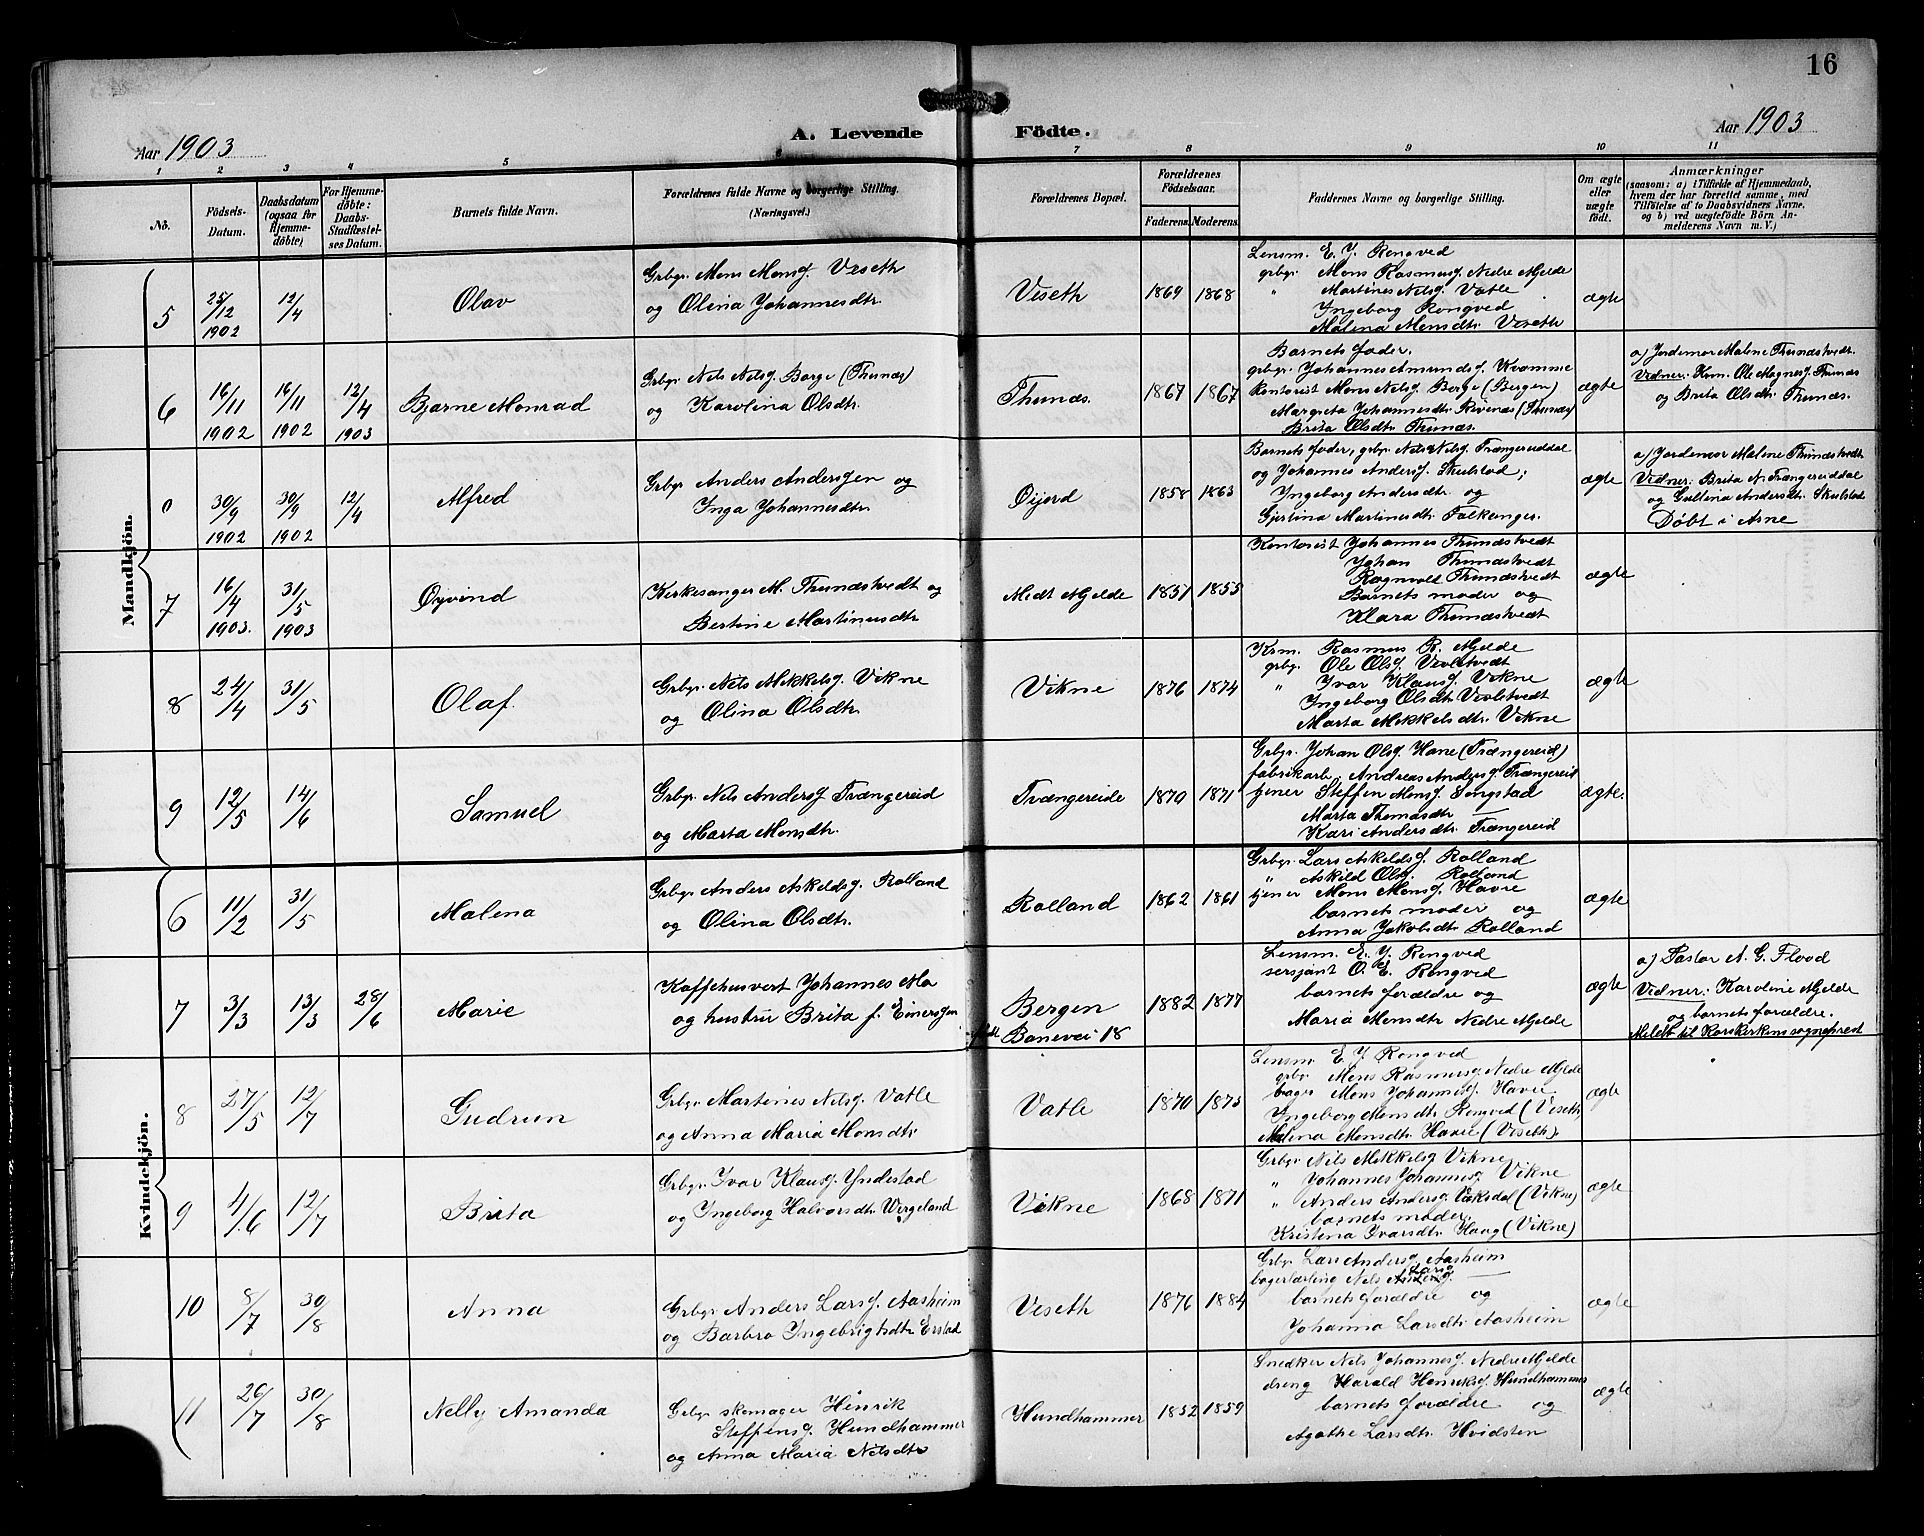 16
Aar 1903
A. Levende Födte.
Aar 1903
1 2 3 4 5 6 7 8 9 10 11
No.
Födsels-Datum.
Daabsdatum (ogsaa for Hjemme-döbte)
For Hjemme-döbte: Daabs-Stadfæstel-ses Datum.
Barnets fulde Navn.
Forældrenes fulde Navne og borgerlige Stilling. (Næringsvei.)
Forældrenes Bopæl.
Forældrenes Födselsaar.
Faderens. Moderens.
Faddernes Navne og borgerlige Stilling.
Om ægte eller uægte födt.
Anmærkninger
(saasom: a) i Tilfælde af Hjemmedaab, hvem der har forrettet samme, med Tilföielse af to Daabsvidners Navne, og b) ved uægtefödte Börn An-melderens Navn m. V.)
Mandkjön.
5
25/12 1902
12/4
Olav
Grbgr. Mons Monsf. Veseth
og Olina Johannesdtr.
Veseth
1869 1868
Lensm. E. J. Rongved
grbgr. Mons Rasmusf. Nedre Mjelde
" Martines Nilsf. Vatle
Ingeborg Rongved
Malena Monsdtr. Veseth
ægte
6
16/11 1902
16/11 1902
12/4 1903
Bjarne Monrad
Grbgr. Nils Nilsf. Borge (Thunæs)
og Karolina Olsdtr.
Thunæs.
1867 1867
Barnets fader.
grbgr. Johannes Amundsf. Kvamme
kontorist Mons Nilsf. Berge (Bergen)
Margreta Johannesdtr. Revenæs (Thunæs)
Brita Olsdtr. Thunæs.
ægte
a) Jordemor Malene Thunæstvedt.
Vidner: Ole Magnesf. Thunæs
og Brita Olsdtr. Thunæs.
0
30/9 1902
30/9 1902
12/4
Alfred
Grbgr. Anders Andersfen og
Inga Johannesdtr.
Öijord
1858 1863
Barnets fader, grbgr. Nils Nilsf. Trængereiddal
og Johannes Andersf. Skulstad;
Ingeborg Andersdtr. og
Gjertina Martinesdtr. Falkanger.
ægte
a) Jordemor Malene Thunæstvedt
Vidner: Brita N. Trængereiddal
og Gultena Andersdtr. Skulstad
Döbt i Arne
7
16/4 1903.
31/5 1903
Öyvind
Kirkesanger M. Thunæstvedt og
Bertine Martinusdtr
Midt Mjelde
1851 1855
Kontorist Johannes Thunæstvedt
Johan Thunæstvedt
Ragnvald Thunæstvedt
Barnets moder og
Klara Thunæstvedt
ægte
8
24/4
31/5
Olaf
Grbgr. Nils Mikkelsf. Vikne
og Olina Olsdtr.
Vikne
1876 1874
Ksm. Rasmus R. Mjelde
grbgr. Ole Olsf. Veoletvedt
" Ivar Klausf. Vikne
Ingeborg Olsdtr. Veoletvedt
Marta Mikkelsdtr. Vikne
ægte
9
12/5
14/6
Samuel
Grbgr. Nils Andersf. Trængereid
og Marta Monsdtr.
Trængereide
1870 1871
Grbgr. Johan Olsf. Hane (Trængereid)
fabrikarb. Andreas Andersf. Trængereid
tjener Steffen Monsf. Songstad
Marta Thomasdtr —
Kari Andersdtr. Trængereid
ægte.
Kvindekjön.
6
11/2
31/5
Malena
Grbgr. Anders Askeldsf. Rolland
og Olina Olsdtr.
Rolland
1862 1861
Grbgr. Lars Askeldsf. Rolland
" Askild Olsf. Rolland
tjener Mons Monsf. Havre
barnets moder og
Anna Jakobsdtr. Rolland
ægte
7
3/3
13/3
28/6
Marie
Kaffehusvert Johannes Mo
og hustru Brita f. Einersfen
Bergen
Banevei 18
1882 1877
Lensm. E. J. Rongved
sersjant O. E. Rongved
barnets forældre og
Maria Monsdtr. Nedre Mjelde
ægte
a) Pastor A. G. Flood
Vidner: Karoline Mjelde
og barnets forældre.
Meldt til Korskirkens sogneprest
8
27/5
12/7
Gudrun
Grbgr. Martines Nilsf. Vatle
og Anna Maria Monsdtr.
Vatle
1870 1873
Lensm. E. J. Rongved
grbgr. Mons Rasmusf. Nedre Mjelde
bager Mons Johannesf. Havre
Ingeborg Monsdtr. Rongved (Veseth)
Malena Monsdtr. Havre (Veseth).
ægte
9
4/6
12/7
Brita
Grbgr. Ivar Klausf. Yndestad
og Ingeborg Halvorsdtr. Wergeland
Vikne
1868 1871
Grbgr. Nils Mikkelsf. Vikne
" Johannes Johannesf. Vikne
" Anders Andersf. Vaksdal (Vikne)
barnets moder.
Kristena Ivarsdtr. Haug (Vikne)
ægte
10
8/7
30/8
Anna
Grbgr. Anders Larsf. Aasheim
og Barbro Ingebrigtsdtr. Erstad
Veseth
1876 1884
Grbgr. Lars Andersf. Aasheim
bagerlærling Nils Larsf. —
barnets forældre og
Johanna Larsdtr. Aasheim
ægte
11
26/7
30/8
Nelly Amanda
Grbgr. skomager Henrik
Steffensf. Hundhammer
og Anna Maria Nilsdtr
Hundhammer
1852 1859
Snedker Nils Johannesf. Nedre Mjelde
dreng Harald Henriksf. Hundhammer
barnets forældre og
Agathe Larsdtr. Hvidsten
ægte